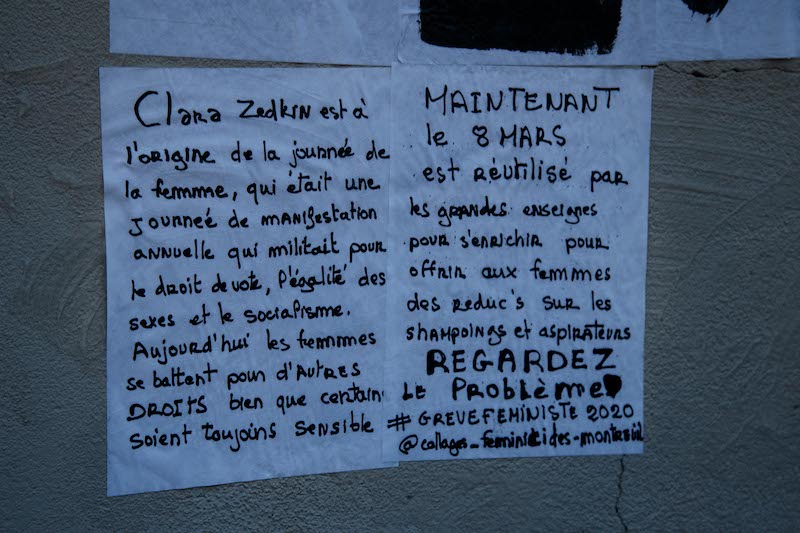 Clara Zedkin est à
l'origine de la journée de
la femme, qui était une
journeé de manifestation
annuelle qui militait pour
le droit de vote, l'égalité des
sexes et le socialisme.
Aujourd'hui les femmes
se battent pour d'AUTRES
DROITS bien que certain
soient toujoins sensible
MAINTENANT
le 8 MARS
est RÉUTILISÉ par
les grandes enseignes
pour s'enrichir pour
offrir aux femmes
des reduc's sur les
shampoings et aspirateurs
REGARDEZ
LE Problème
# GREVEFEMINISTE 2020
@collages_feminicides-montreuil